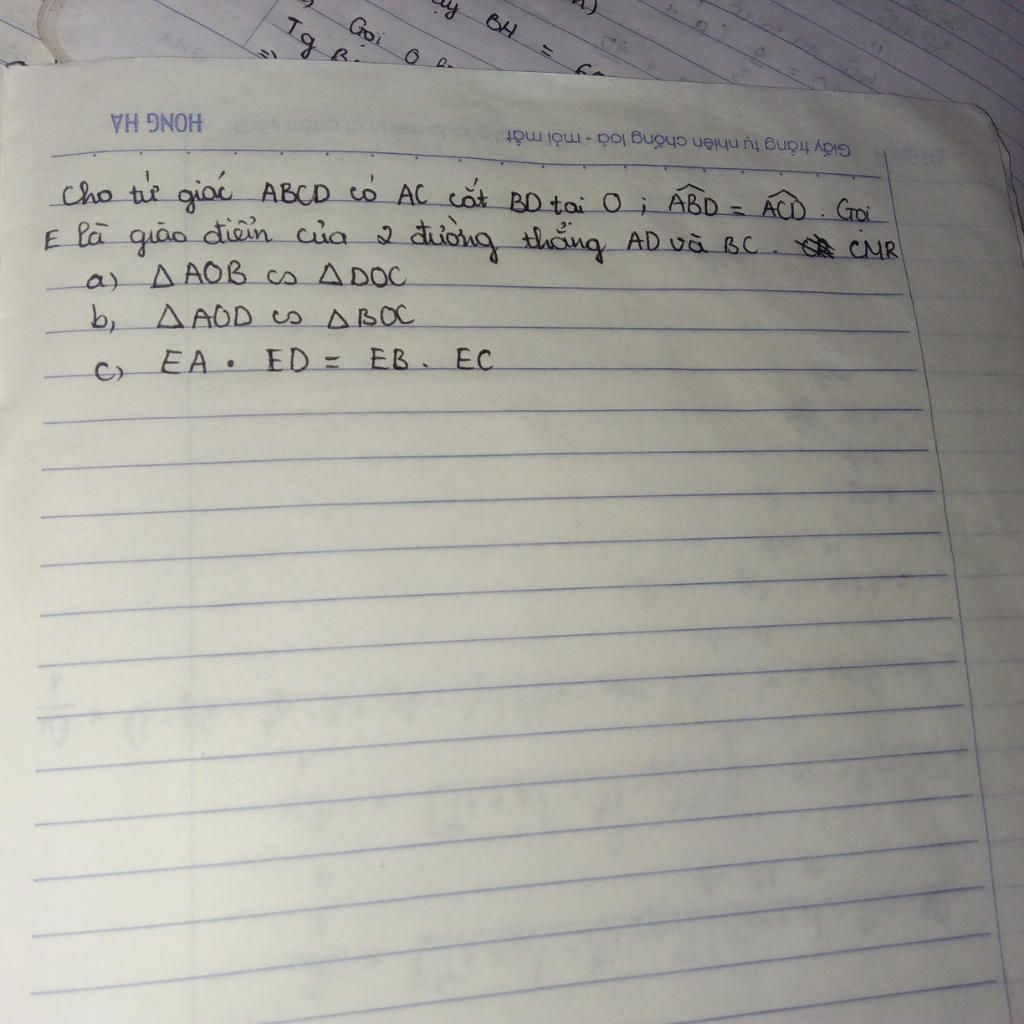 Gọi
BH =
Tg
HONG HA
Giấy trắng tự nhiên chống loá - mỏi mắt
Cho tứ giác ABCD có AC cắt BD tại O ; ABD = ACD . Gọi
E là giao điểm của 2 đường thẳng AD và BC . CMR
a) △AOB ∽ △DOC
b, △AOD ∽ △BOC
c) EA . ED = EB . EC